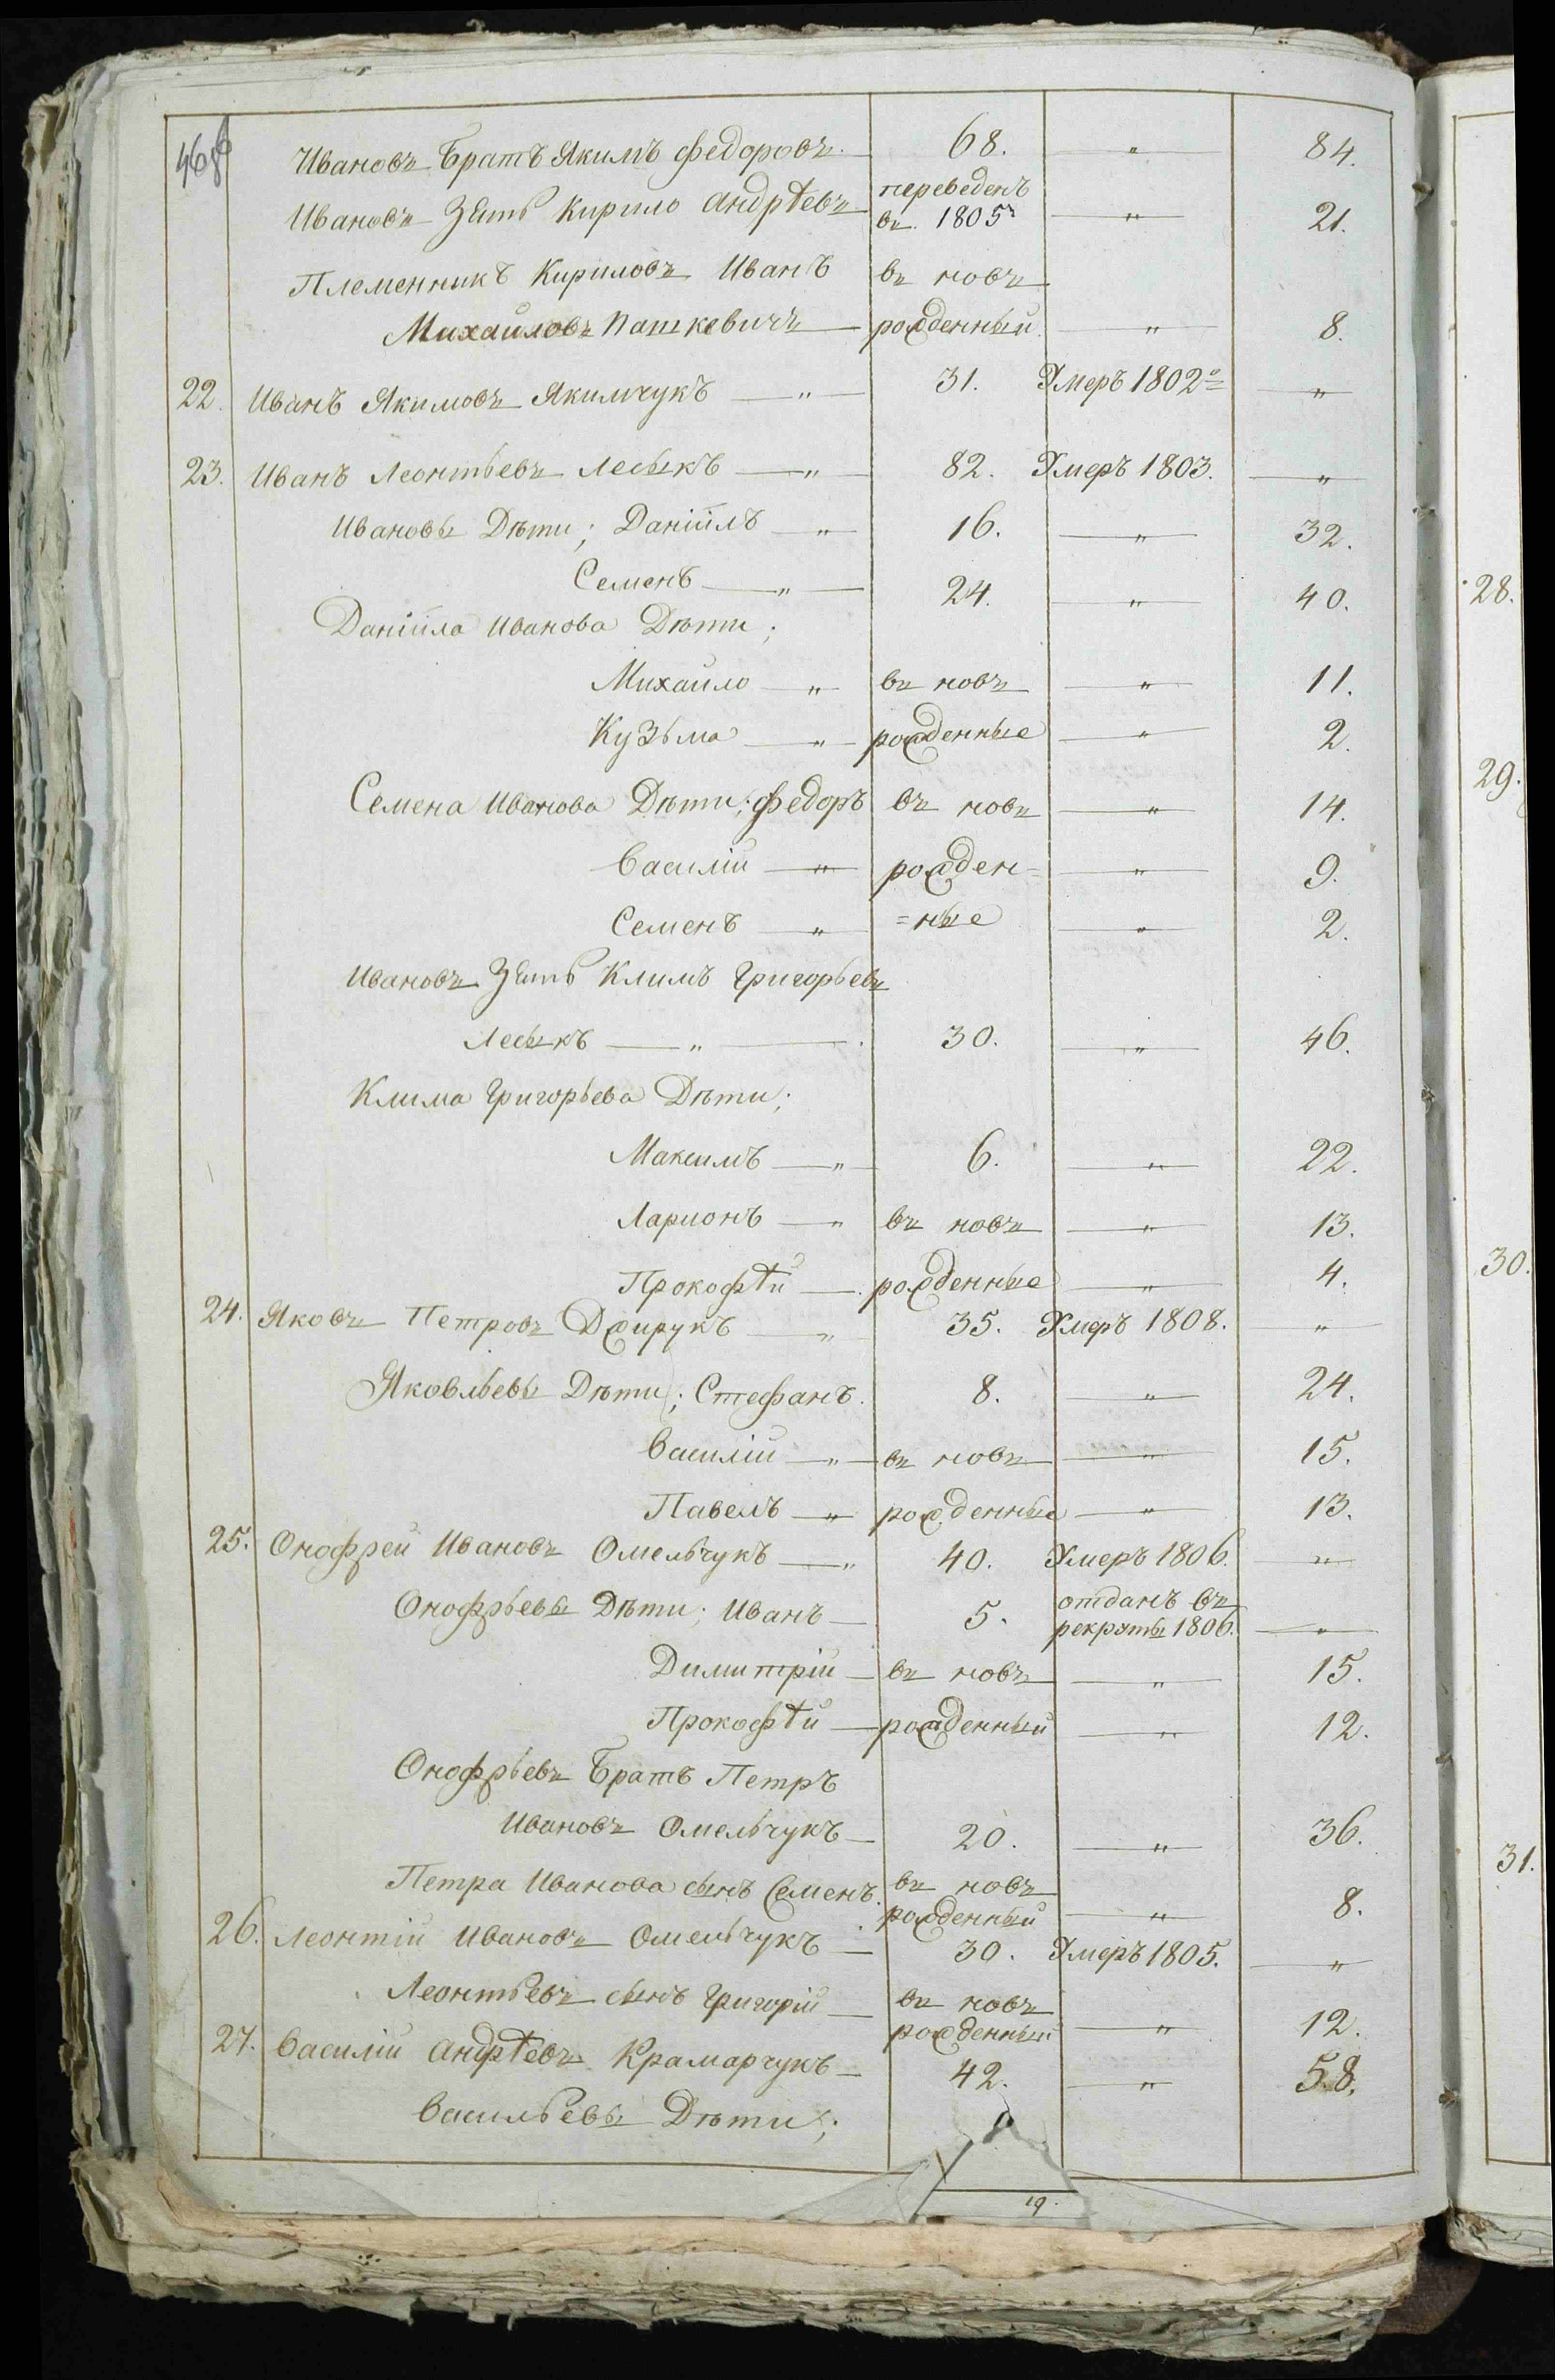 Ивановъ Братъ Якимъ Федоровъ 68. — " — 84.
Ивановъ Зять Кирило Андрѣевъ переведенъ въ 1805г — " — 21.
Племенникъ Кириловъ Иванъ въ новъ
Михайловъ Пашкевичъ — рожденный — " — 8.
22. Иванъ Якимовъ Якимчукъ — " — 31. Умеръ 1802го — " —
23. Иванъ Леонтьевъ Лесыкъ — " — 82. Умеръ 1803. — " —
Ивановы Дѣти; Даніилъ — " — 16. — " — 32.
Семенъ — " — 24. — " — 40.
Даніила Иванова Дѣти;
Михайло — " — въ новъ — " — 11.
Кузьма — " — рожденные — " — 2.
Семена Иванова Дѣти; Федоръ въ новъ — " — 14.
Василій — " — рожден= — " — 9.
Семенъ — " — =ные — " — 2.
Ивановъ Зять Климъ Григорьевъ
Лесыкъ — " — 30. — " — 46.
Клима Григорьева Дѣти;
Максимъ — " — 6. — " — 22.
Ларионъ — " въ новъ — " — 13.
Прокофѣй — рожденные — " — 4.
24. Яковъ Петровъ — " 35. Умеръ 1808. — " —
Яковлевы Дѣти; Стефанъ. 8. — " — 24.
Василій — " — въ новъ — " — 15.
Павелъ — " — рожденные — " — 13.
25. Онофрей Ивановъ Омельчукъ — " 40. Умеръ 1806. — " —
Онофрьевы Дѣти; Иванъ — 5. отданъ въ рекруты 1806. — " —
Димитрій — въ новъ — " — 15.
Прокофѣй — рожденный — " — 12.
Онофрьевъ Братъ Петръ
Ивановъ Омельчукъ — 20. — " — 36.
Петра Иванова сынъ Семенъ. въ новъ рожденный — " — 8.
26. Леонтій Ивановъ Омельчукъ — 30. Умеръ 1805. — " —
Леонтьевъ сынъ Григорій — въ новъ рожденный — " — 12.
27. Василій Андрѣевъ Крамарчукъ — 42. — " — 58.
Васильевы Дѣти;
19.
28.
29.
30.
31.